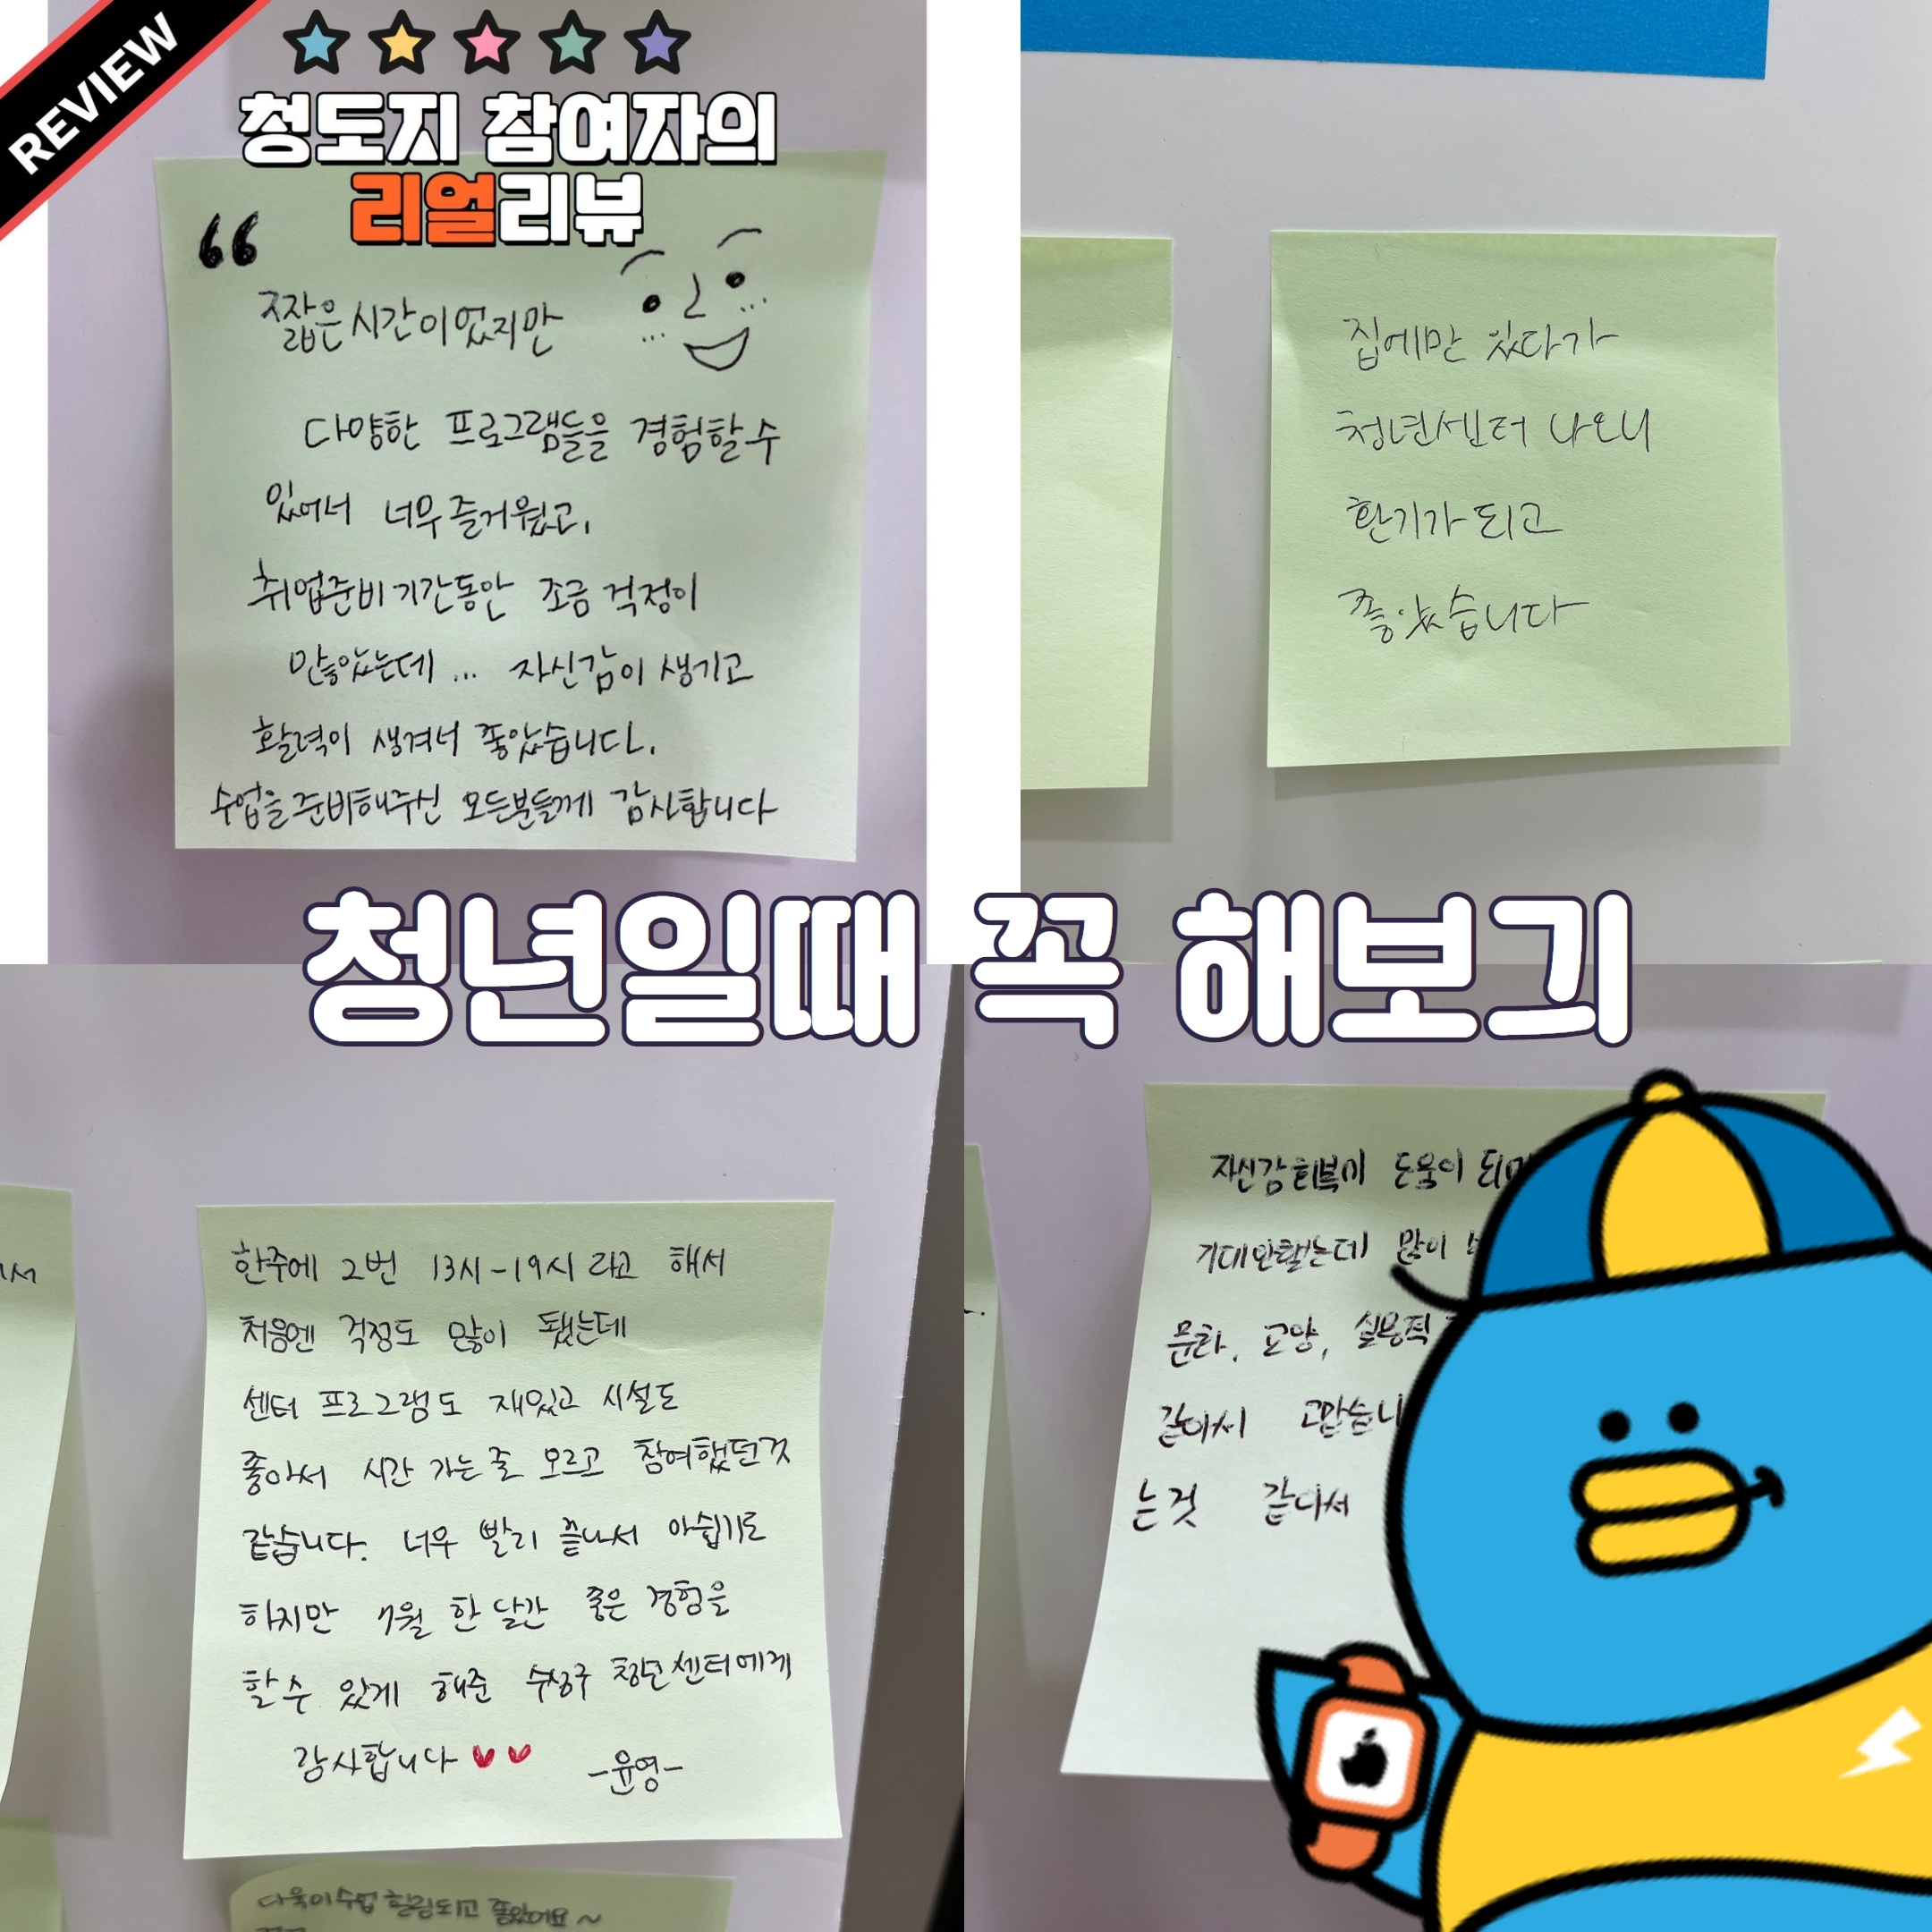 REVIEW
청도지 참여자의
리얼리뷰
“
짧은 시간이었지만
다양한 프로그램들을 경험할 수
있어서 너무 즐거웠고,
취업준비 기간동안 조금 걱정이
많았었는데... 자신감이 생기고
활력이 생겨서 좋았습니다.
수업을 준비해주신 모든분들께 감사합니다
집에만 있다가
청년센터 나오니
환기가 되고
좋았습니다
청년일때 꼭 해보긔
한주에 2번 13시-19시 라고 해서
처음엔 걱정도 많이 됐는데
센터 프로그램도 재밌고 시설도
좋아서 시간 가는 줄 모르고 참여했던것
같습니다. 너무 빨리 끝나서 아쉽기도
하지만 7월 한 달간 좋은 경험을
할 수 있게 해준 수성구 청년센터에게
감사합니다
-윤영-
다육이수업 힐링되고 좋았어요~
자신감 회복이 도움이
기대안했는데 많이
문화, 교양, 실용적
같아서
는것 같아서